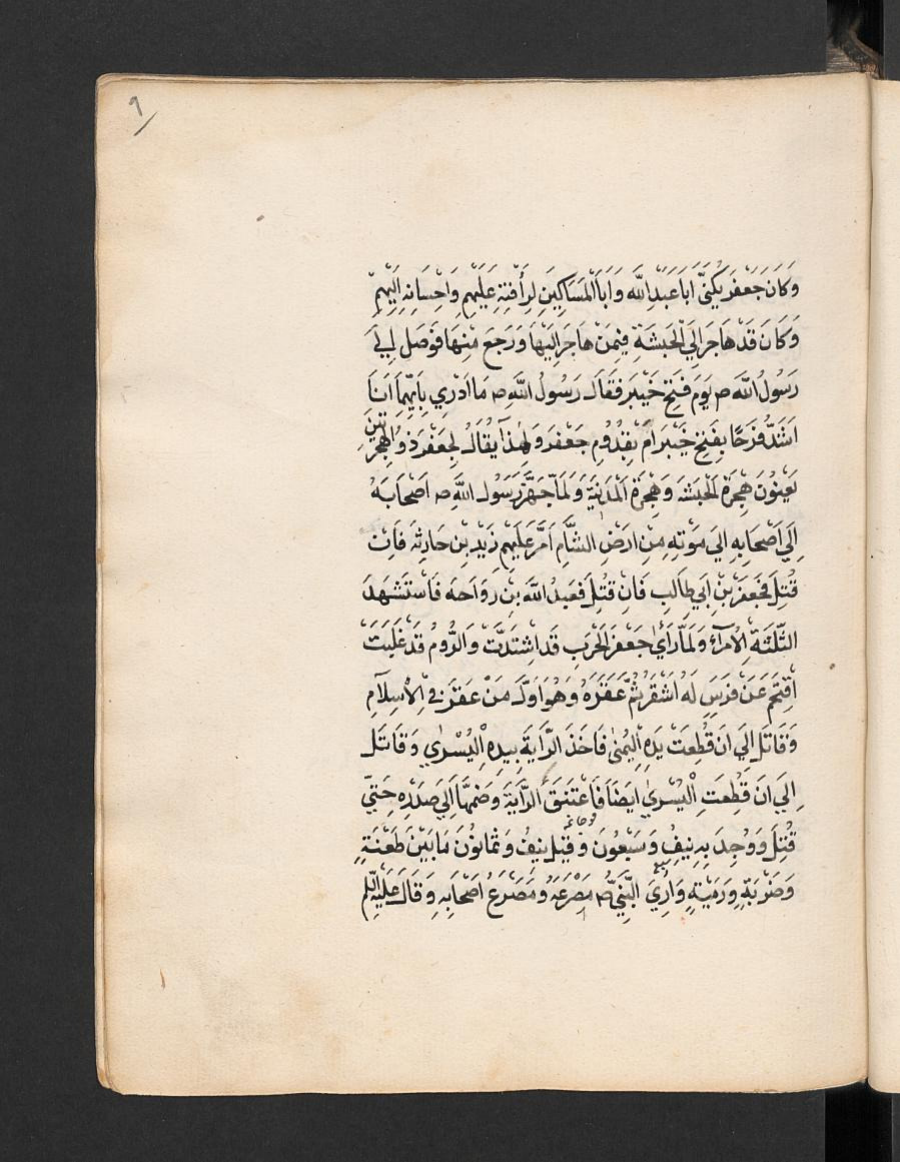 ٩
وَكَانَ جَعْفَر يُكَنّىَ اَبَا عَبدِ اللّٰه وَاَبَا اَلمَسَاكِينِ لِرَأفَتِهِ عَلَيهِم وَاِحسَانِهِ اِلَيْهِم
وَكَانَ قَدْ هَاجَرَ اِلَي الْحَبَشَةِ فِيمَنْ هَاجَرَ اِلَيْهَا وَرَجَعَ مِنْهَا فَوَصَل اِلَيَ
رَسُولُ اللّٰه ص يَوَمَ فَتحِ خَيْبَر فَقَالَ رَسُولُ اللّٰهِ ص مَا اَدْرِي بِاَيِّهِمَا اَنَا
اَشَدُّ فَرَحًا بِفَتحِ خَيْبَر اَمْ بِقُدُومِ جَعْفَر وَلِهٰذَا يُقَالُ لِجَعْفَر ذُو الهِجْرَتَيْنِ
يَعْنُونَ هِجْرَةَ الحَبَشَةِ وَهِجْرَةَ اَلمَدِيَنَةِ وَلَمَّا جَهَّزَ رَسُولُ اللّٰهِ ص اَصْحَابَهُ
اِلَى اَصْحَابِهِ اِلَي مَوْتِهِ مِنْ ارَضْ الشَّامِ اَمَّرَ عَلَيهِم زَيدِ بن حَارِثَهَ فَاِنْ
قُتِلَ فَجَعفَرْ بنِ اَبي طَالبٍ فَاِن قُتِلَ فَعَبدُ اللّٰه بن رَوَاحَه فَاستَشْهَدَ
الثَّلثَةَ الاُمَرَآءُ وَلَمَّا رَاَيَ جَعفَر اَلحَرَب قَد اشِتَدَّت وَالرُّومُ قَد غَلَبَتْ
اقتَحَم عَنَ فَرَسٍ لَهُ اَشْقَر ثُمَّ عَقَرَهُ وَهُوَ اَوَّلُ مَنْ عَقَرَ فِي الاِسْلَام
وَقَاتَلَ اِلَي اَن قُطِعَتْ يَدِهِ اليُمنٰى فَاَخَذَ الرَّايَةَ بِيَدِهِ اليُسْرٰي وَقَاتَلَ
اِلَي اَن قُطِعَتِ اليُسرٰي ايَضًا فَاعتَنَقَ الرَّايَةَ وَضَمَّهَا اِلَي صَدْرِهِ حَتَّي
قُتِلَ وَوُجِدَ بِهِ نِيفُ وَسَبْعُونَ وَقِيْلَ نِيفُ وَثَمانوُنَ مَا بَيْنَ طَعْنَةٍ
وَضَرْبَةٍ وَرَمْيَةٍ وَارُيَ النَّبيُّ ص مَصْرَعَهُ وَمَصْرَعُ اَصْحَابِهِ وَقَالَ عَلَيْهِ السَّلم